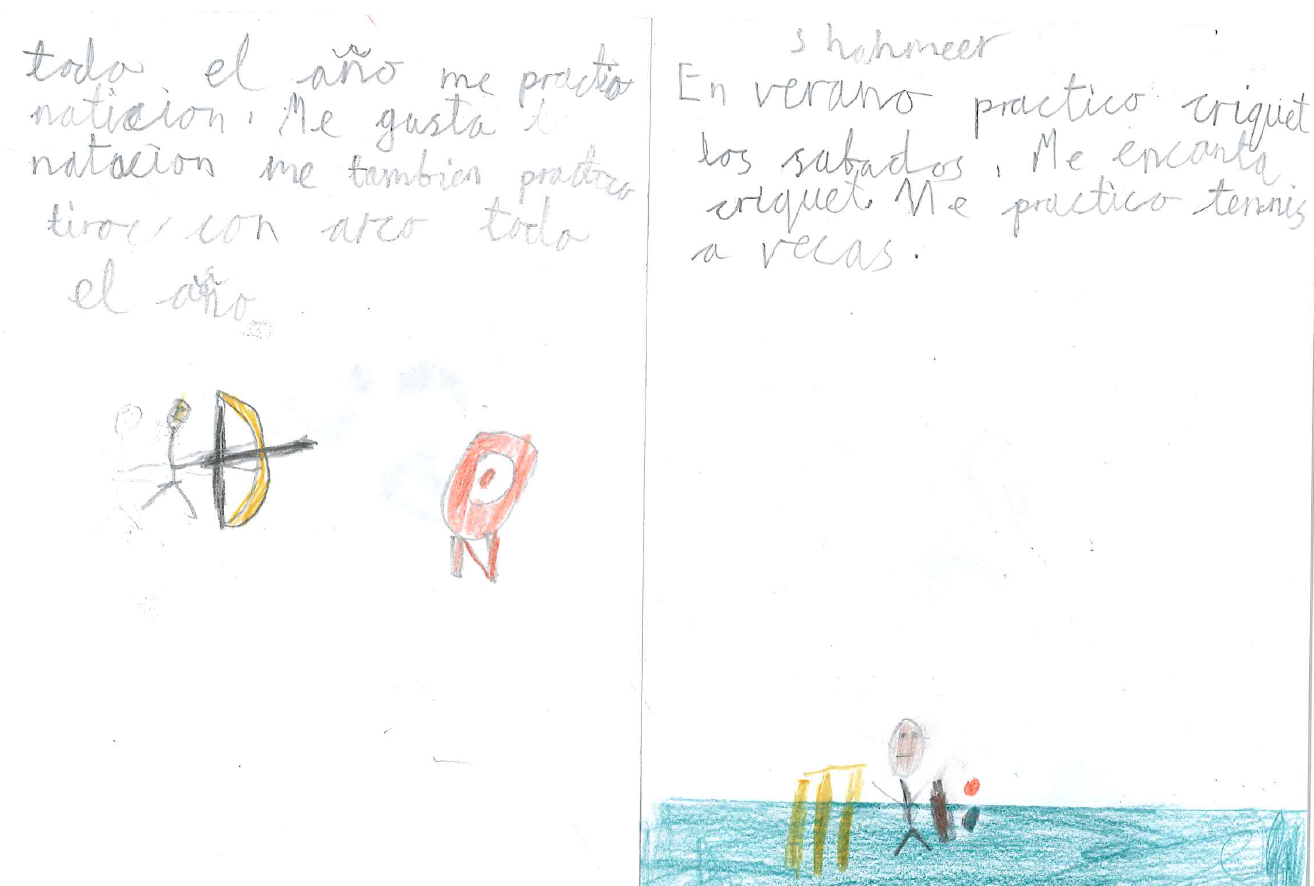 todo el año me practico
naticion. Me gusta
natacion me tambien practico
tiro con arco todo
el año
shahmeer
En verano practico criquet
los sabados. Me encanta
criquet. Me practico tennis
a vecas.